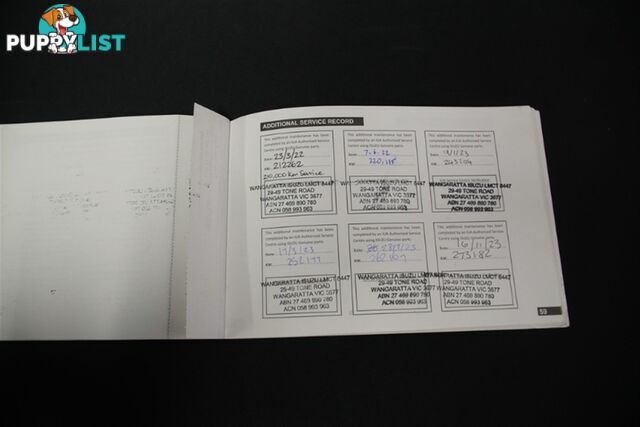 PUPPYLIST
ADDITIONAL SERVICE RECORD
This additional maintenance has been
completed by an IUA Authorised Service
Centre using ISUZU Genuine parts.
Date: 23/3/22
KM: 212262
210,000 Km Service
WANGARATTA ISUZU LMCT 8447
29-49 TONE ROAD
WANGARATTA VIC 3677
ABN 27 469 890 780
ACN 058 993 963
This additional maintenance has been
completed by an IUA Authorised Service
Centre using ISUZU Genuine parts.
Date: 7-6-22
KM: 220,118
WANGARATTA ISUZU LMCT 8447
29-49 TONE ROAD
WANGARATTA VIC 3677
ABN 27 469 890 780
ACN 058 993 963
This additional maintenance has been
completed by an IUA Authorised Service
Centre using ISUZU Genuine parts.
Date:
KM:
WANGARATTA ISUZU LMCT 8447
29-49 TONE ROAD
WANGARATTA VIC 3677
ABN 27 469 890 780
ACN 058 993 963
This additional maintenance has been
completed by an IUA Authorised Service
Centre using ISUZU Genuine parts.
Date:
KM:
WANGARATTA ISUZU LMCT 8447
29-49 TONE ROAD
WANGARATTA VIC 3677
ABN 27 469 890 780
ACN 058 993 963
This additional maintenance has been
completed by an IUA Authorised Service
Centre using ISUZU Genuine parts.
Date:
KM:
WANGARATTA ISUZU LMCT 8447
29-49 TONE ROAD
WANGARATTA VIC 3677
ABN 27 469 890 780
ACN 058 993 963
This additional maintenance has been
completed by an IUA Authorised Service
Centre using ISUZU Genuine parts.
Date: 16/11/23
KM: 273182
WANGARATTA ISUZU LMCT 8447
29-49 TONE ROAD
WANGARATTA VIC 3677
ABN 27 469 890 780
ACN 058 993 963
59